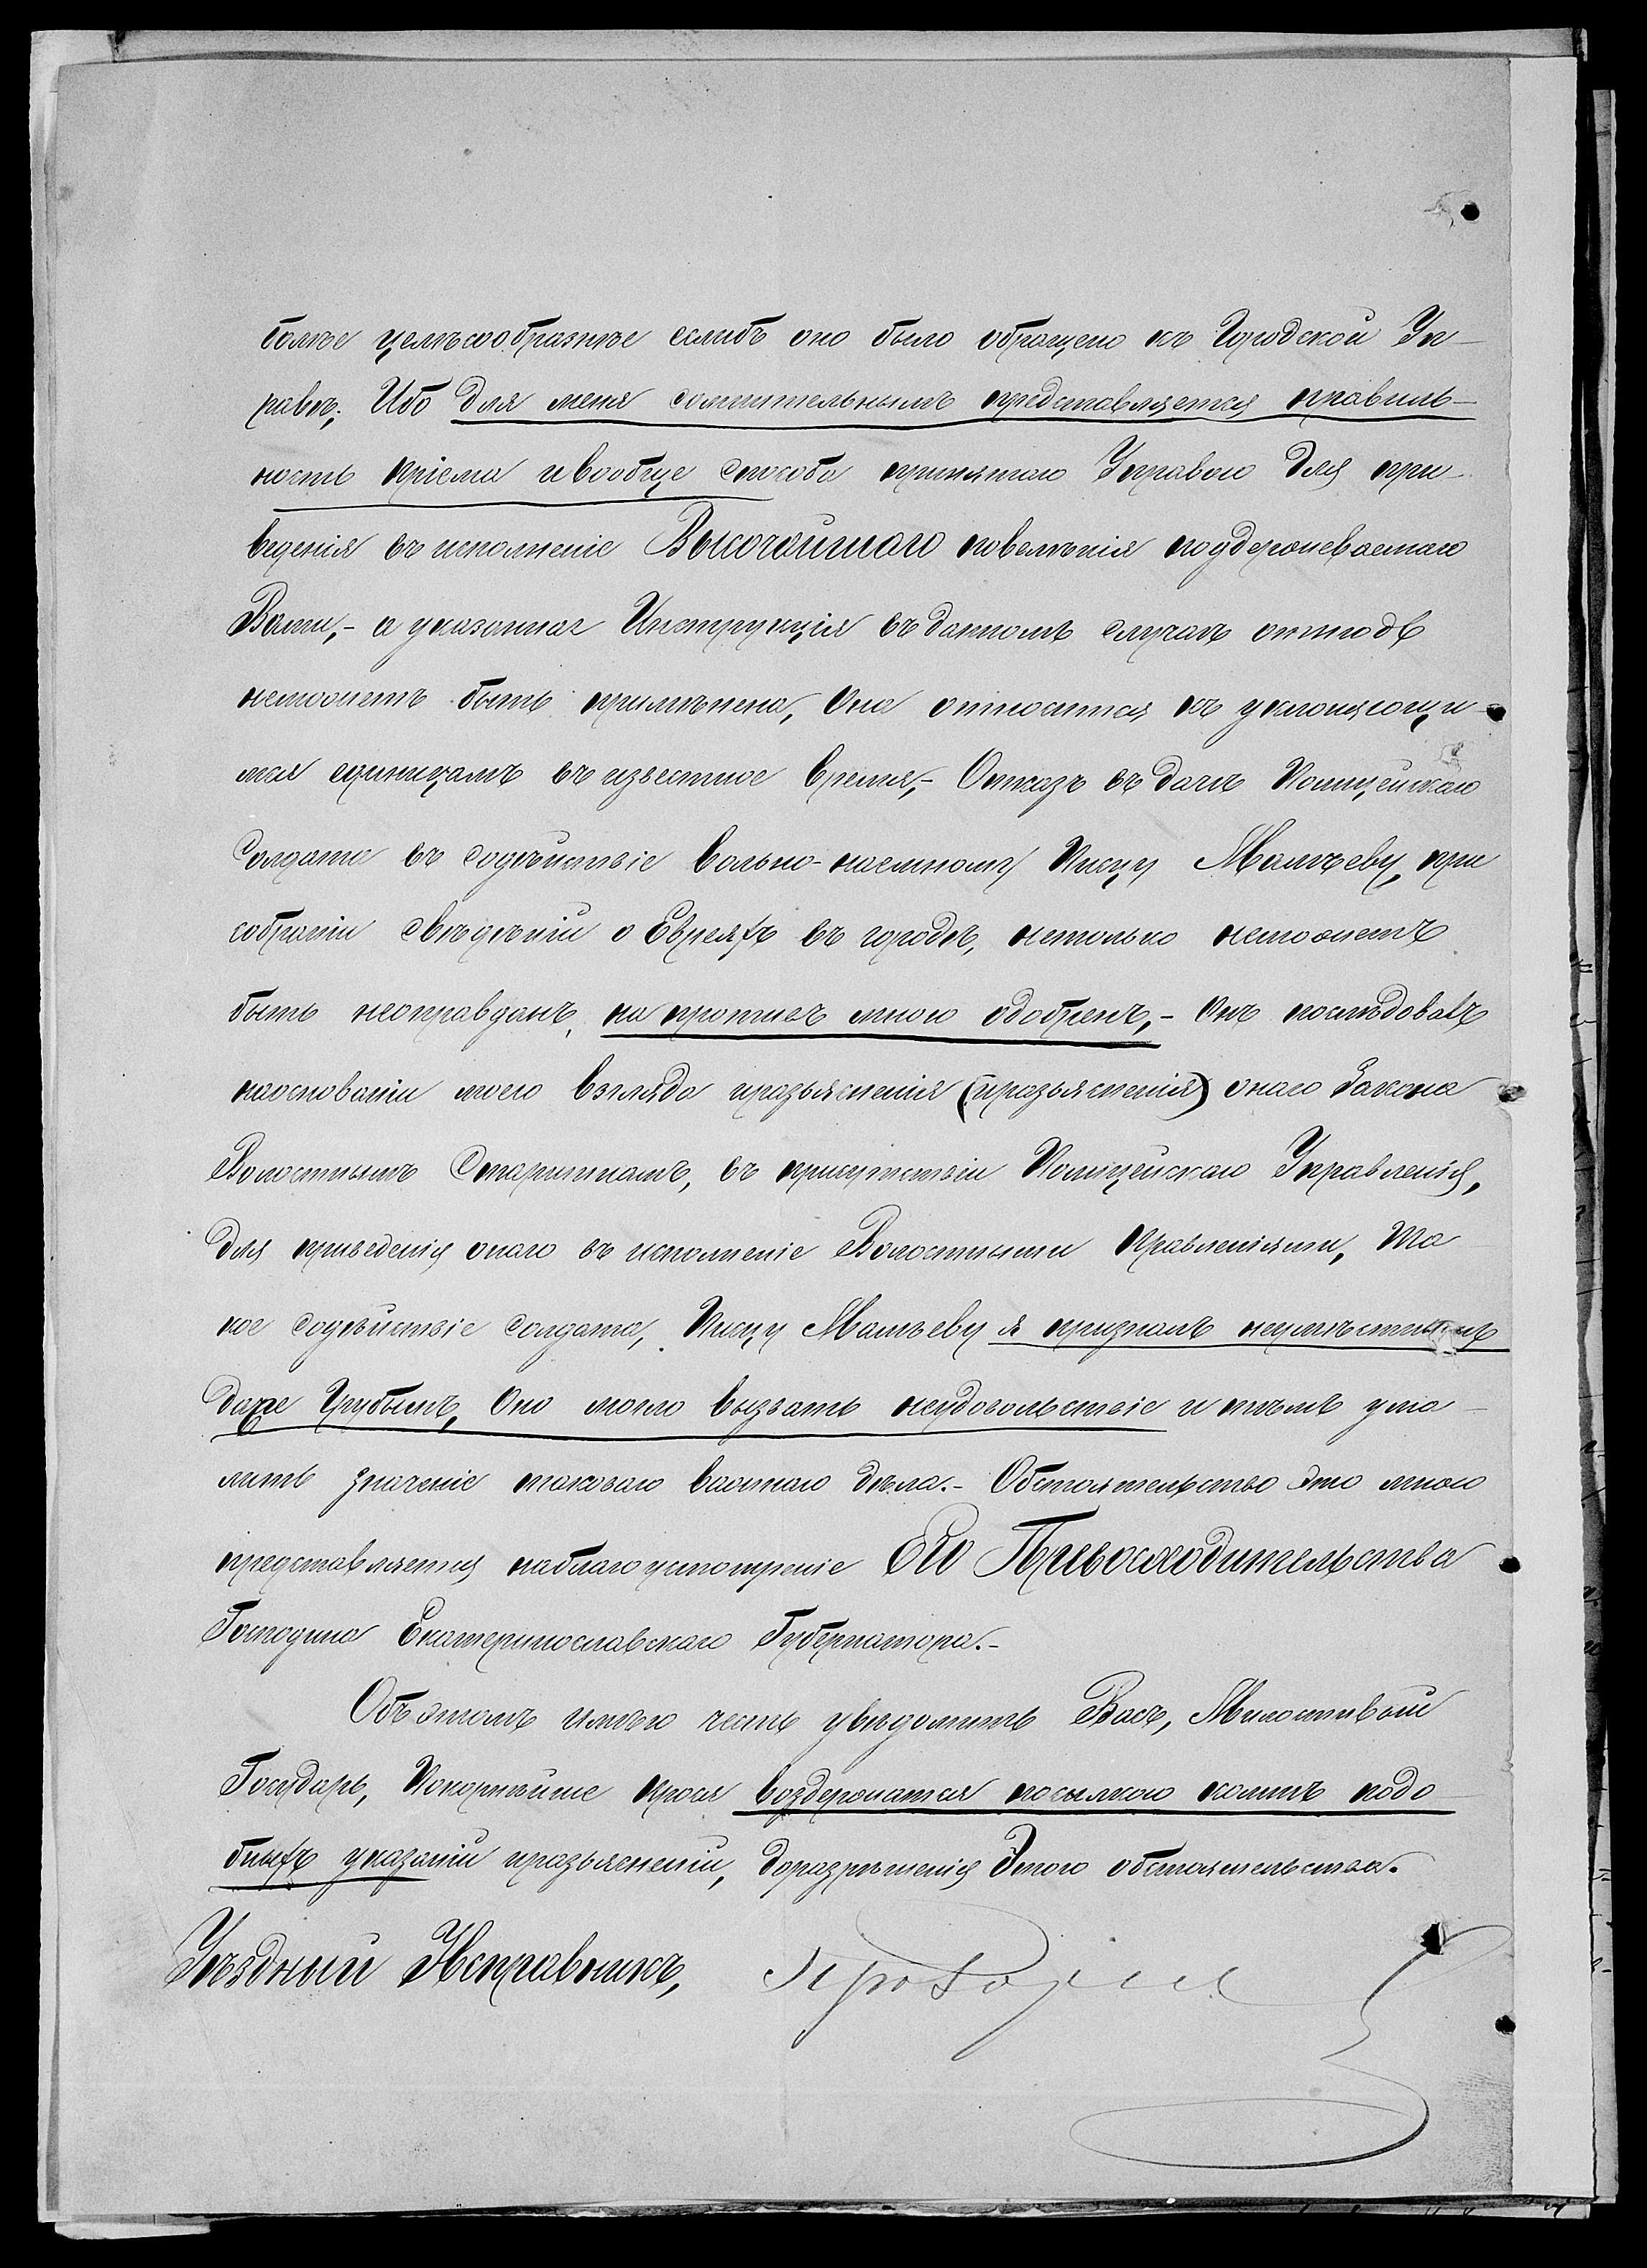 болѣе целѣсообразнѣе еслибъ оно было обращено къ Городской Уп-
равѣ; Ибо для меня сомнительнымъ представляется правиль-
ность пріема и вообще способа принятаго Управою для при-
веденія въ исполненіе Высочайшаго повелѣнія поддерживаемаго
Вами,- а указанная Инструкція въ данномъ случаѣ отнюдь
неможетъ быть примѣнена, Она относится къ уклоняющи-
мся единицамъ въ известное время,- Отказъ въ дачѣ Полицейскаго
Солдата въ содѣйствіе вольно-наемному Писцу Малѣеву, при
собраніи свѣдѣній о Евреяхъ въ городѣ, нетолько неможетъ
быть неоправданъ, напротивъ мною одобренъ,- Онъ послѣдовалъ
наосновании моего взгляда иразъясненія (иразъясненія) онаго Закона
Волостнымъ Старшинамъ, въ присутствіи Полицейскаго Управленія,
для приведенія онаго въ исполненіе Волостными Правленіями, Та
кое содѣйствіе солдата, Писцу Малѣеву я призналъ неумѣстнымъ
даже Грубымъ, Оно могло вызвать неудовольствіе и тѣмъ ума-
лить значеніе таковаго важнаго дѣла.- Обстоятельство это мною
представляется наблагоусмотреніе Его Превосходительства
Господина Екатеринославскаго Губернатора.-
Объ этомъ имѣю честь увѣдомить Васъ, Милостивый
Государь, Покорнѣйше прося воздержатся посылкою комнѣ подо-
бныхъ указаній иразъясненій, доразрѣшенія Этого обстоятельства.
Уѣздный Исправникъ,